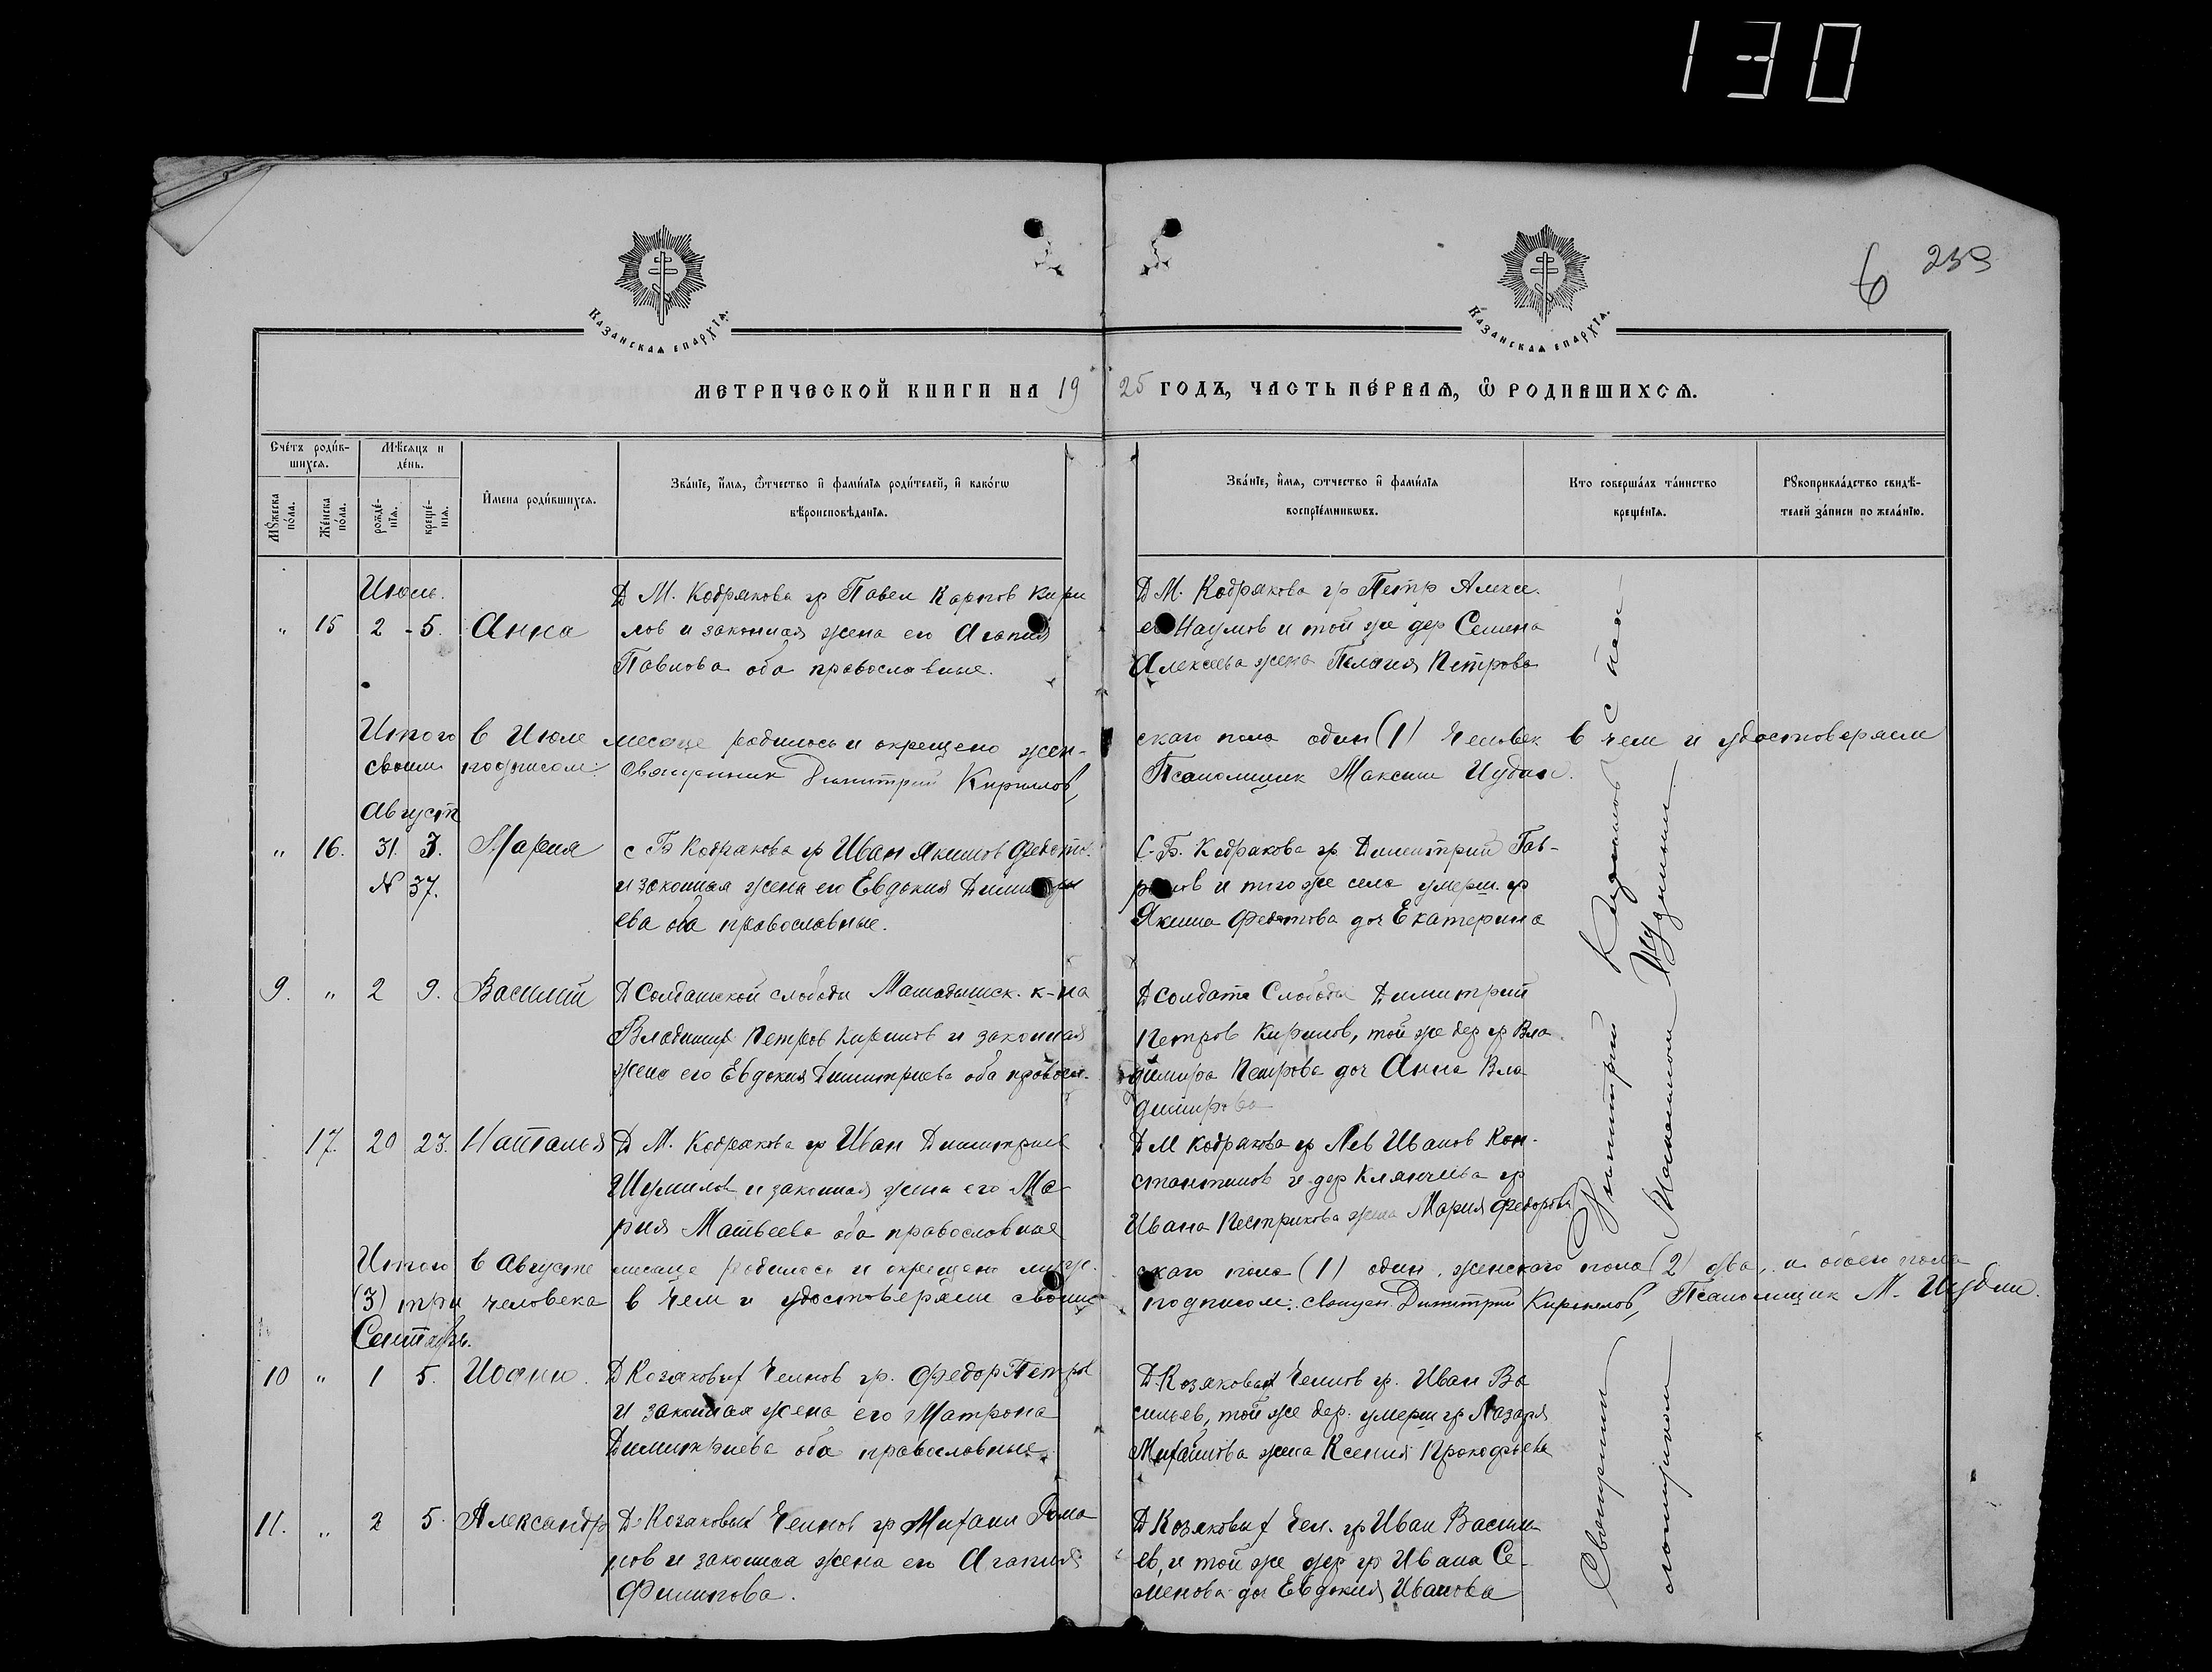 130
6 239
Казанскаѧ епархїѧ.
Казанскаѧ епархїѧ.
МЕТРИЧЕСКОЙ КНИГИ НА 1925 ГОДЪ, ЧАСТЬ ПЕ́РВАѦ, Ѿ РОДИВШИХСѦ.
Сче́тъ роди́в-
шихсѧ.
Мѣсѧцъ и
де́нь.
Мꙋ́жеска
по́ла.
Же́нска
по́ла.
рожде́-
нїѧ.
креще́-
нїѧ.
И́мена роди́вшихсѧ.
Зва́нїе, и́мѧ, ѻ҆́тчество и҆ фами́лїѧ роди́телей, и҆ како́гѡ
вѣроисповѣ́данїѧ.
Зва́нїе, и́мѧ, ѻ҆́тчество и҆ фами́лїѧ
воспрїе́мникѡвъ.
Кто соверша́лъ та́инство
креще́нїѧ.
Рꙋкоприкла́дство свидѣ́-
телей за́писи по жела́нїю.
Июль.
" 15 2 - 5. Анна
Д М. Кобрякова гр Павел Карпов Кири
лов и законная жена его Агапия
Павлова оба православные.
Д М. Кобрякова гр Петр Алексе.
ев Наумов и той же дер Семена
Алексеева жена Пелагия Петрова
Итого в Июле месяце родилось и окрещено жен-
скаго пола один (1) человек в чем и удостоверяем
своим подписом: Священник Димитрий Кириллов,
Псаломщик Максим
Август
" 16. 31. 3. Мария
№ 37.
с Б Кобрякова гр Иван Якимов Федотов
и законная жена его Евдокия Димитри
ева оба православные.
С. Б. Кобрякова гр. Димитрий Гав-
рилов и того же села умерш. гр
Якима Федотова доч Екатерина
9. " 2 9. Василий
Д Солдатской слободы к-на
Владимир Петров Кирилов и законная
жена его Евдокия Димитриева оба правосл.
Д Солдатс Слободы Димитрий
Петров Кирилов, той же дер гр Вла
димира Петрова доч Анна Вла
димирова
17. 20 23. Наталья
Д М. Кобрякова гр Иван Димитриев
Шумилов и законная жена его Ма-
рия Матвеева оба православные
Д М Кобрякова гр Лев Иванов Кон-
стантинов и дер Клянчеева гр
Ивана Пестрикова жена Мария Федорова
Итого в Августе месяце родилось и окрещено муж.
скаго пола (1) один, женского пола (2) два, и обоего пола
(3) три человека в чем и удостоверяем своим
подписом: Священ. Димитрий Кириллов, Псаломщик М.
Сентябрь.
10 " 1 5. Иоанн.
Д Козяковых Челнов гр. Федор Петров
и законная жена его Матрона
Димитриева оба православные
Д. Козяковых Челнов гр. Иван Ва
сильев, той же дер. умерш гр Лазаря
Михайлова жена Ксения Прокофьева
11. " 2 5. Александр
Д. Козяковых Челнов гр Михаил Рома
нов и законная жена его Агапия
Филипова.
Д Козяковых Чел. гр Иван Василь
ев, и той же дер гр Ивана Се-
менова доч Евдокия Иванова
Священник Димитрий Кириллов с пса-
ломщиком Максимом